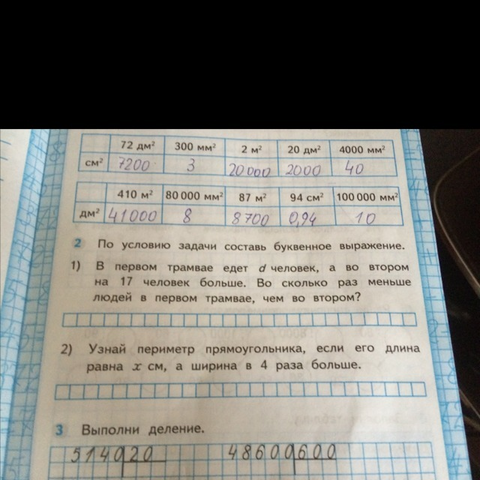 72 дм² 300 мм² 2 м² 20 дм² 4000 мм²
см² 7200 3 20000 2000 40
410 м² 80 000 мм² 87 м² 94 см² 100 000 мм²
дм² 41000 8 8700 0,94 10
2 По условию задачи составь буквенное выражение.
1) В первом трамвае едет d человек, а во втором
на 17 человек больше. Во сколько раз меньше
людей в первом трамвае, чем во втором?
2) Узнай периметр прямоугольника, если его длина
равна x см, а ширина в 4 раза больше.
3 Выполни деление.
5140 20 48600 600